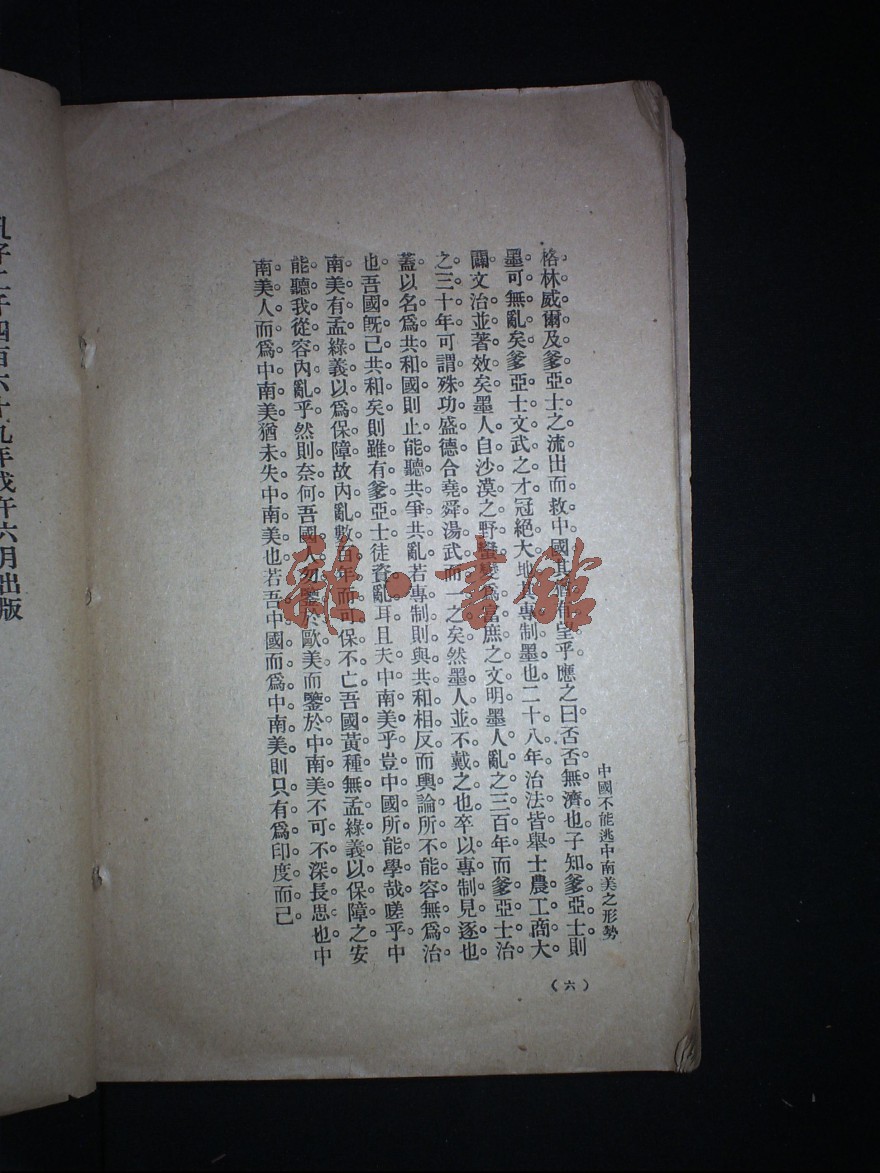 中國不能逃中南美之形勢
（六）
格林威爾及爹亞士之流出而救中國其有望乎應之曰否否無濟也子知爹亞士則
墨可無亂矣爹亞士文武之才冠絕大地專制墨也二十八年治法皆舉士農工商大
闢文治並著效矣墨人自沙漠之野蠻變爲富庶之文明墨人亂之三百年而爹亞士治
之三十年可謂殊功盛德合堯舜湯武而一之矣然墨人並不戴之也卒以專制見逐也
蓋以名爲共和國則止能聽共爭共亂若專制則與共和相反而輿論所不能容無爲治
也吾國旣已共和矣則雖有爹亞士徒資亂耳且夫中南美乎豈中國所能學哉嗟乎中
南美有孟綠義以爲保障故內亂數百年而可保不亡吾國黃種無孟綠義以保障之安
能聽我從容內亂乎然則奈何吾國人勿鑒於歐美而鑒於中南美不可不深長思也中
南美人而爲中南美猶未失中南美也若吾中國而爲中南美則只有爲印度而已
孔子二千四百六十九年戊午六月出版
雜·書館